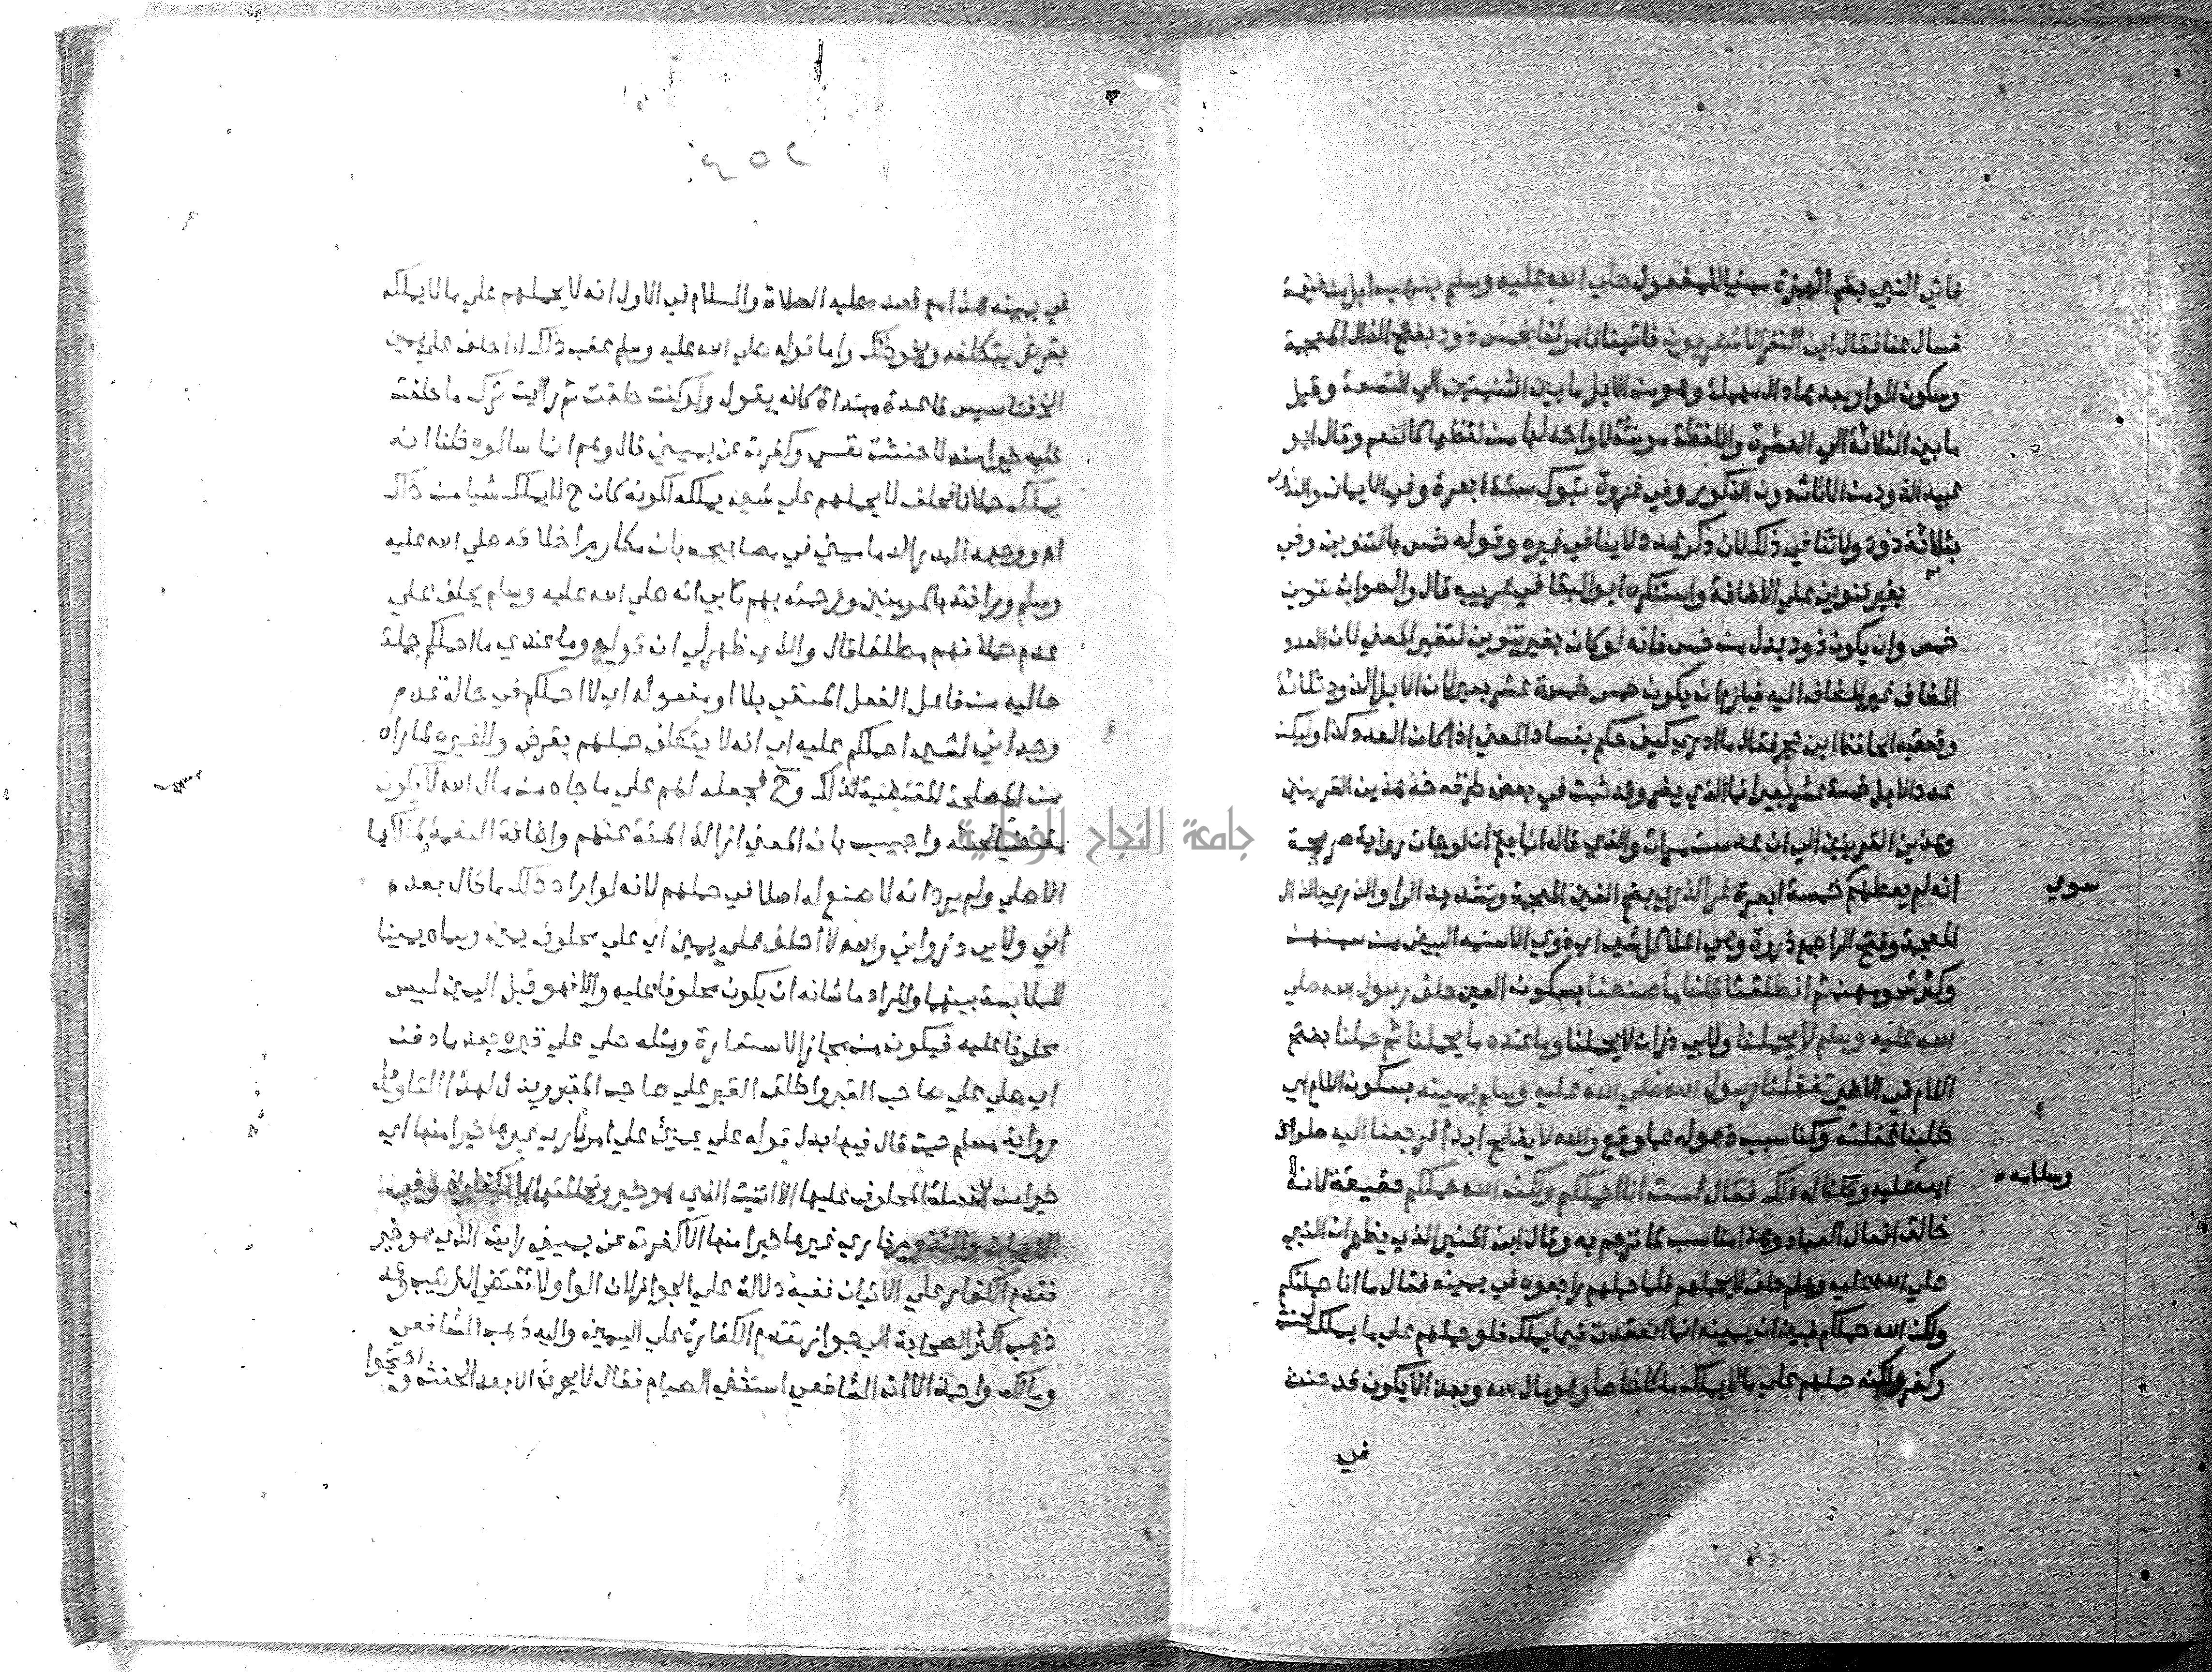 فاتي النبي بضم الهمزة مبنيا للمفعول صلي الله عليه وسلم بنهب ابل من غنيمة
فسال عنا فقال اين النفر الاشعريون فاتيناه فامر لنا بخمس ذود بفتح الذال المعجمة
وسكون الواو بعدها دال مهملة وهو من الابل ما بين الثنتين الي التسعة وقيل
ما بين الثلاثة الي العشرة واللفظة مونثة لا واحد لها من لفظها كالنعم وقال ابو
عبيد الذود من الاناث دون الذكور وفي غزوة تبوك ستة ابعرة وفي الايمان والنذور
بثلاثة ذود ولا تنافي ذلك لان ذكر عدد لا ينافي غيره وقوله خمس بالتنوين وفي
بغير تنوين علي الاضافة واستنكره ابو البقا في غريبه قال والصواب تنوين
خمس وان يكون ذود بدل من خمس فانه لو كان بغير تنوين لتغير المعني لان العدد
المضاف غير المضاف اليه فيلزم ان يكون خمس خمسة عشر بعيرا لان الابل الذود ثلاثة
وتعقبه الحافظ ابن حجر فقال ما ادري كيف حكم بفساد المعني اذا كان العدد كذا وليكن
عدد الابل خمسة عشر بعيرا فما الذي يضر وقد ثبت في بعض طرقه خذ هذين القرينين
وهذين القرينين الي ان عد ست مرات والذي قاله انما يتم ان لو جات رواية صريحة
انه لم يعطهم خمسة ابعرة غر الذري بضم الغين المعجمة وتشديد الرا والذري بالذال
سوي
المعجمة وفتح الرا جمع ذروة وهي اعلا كل شي اي ذوي الاسنمه البيض من سمنهن
وكثرة شحومهن ثم انطلقنا قلنا ما صنعنا بسكون العين حلف رسول الله صلي
الله عليه وسلم لا يحملنا ولابي ذر ان لا يحملنا وما عنده ما يحملنا ثم حملنا بفتح
اللام في الاخير تغفلنا رسول الله صلي الله عليه وسلم يمينه بسكون اللام اي
طلبنا غفلته وكنا سبب ذهوله عما وقع والله لا نفلح ابدا فرجعنا اليه صلوات
الله عليه وقلنا له ذلك فقال لست انا احملكم ولكن الله حملكم حقيقة لانه
وسلامه
خالق افعال العباد وهذا مناسب لما ترجم به وقال ابن المنير الذي يظهر ان النبي
صلي الله عليه وسلم حلف لا يحملهم فلما حملهم راجعوه في يمينه فقال ما انا حملتكم
ولكن الله حملكم فبين ان يمينه انما انعقدت فيما يملك فلو حملهم علي ما يملك لحنث
وكفر ولكنه حملهم علي ما لا يملك ملكا خاصا وهو مال الله وبهذا لا يكون قد حنث
في
٤٥٢
في يمينه هذا مع قصده عليه الصلاة والسلام في الاول انه لا يحملهم علي ما لا يملكه
بقرض يتكلفه ونحو ذلك واما قوله صلي الله عليه وسلم عقب ذلك لا احلف علي يمين
الخ فتاسيس قاعدة مبتداة كانه يقول ولو كنت حلفت ثم رايت ترك ما حلفت
عليه خيرا منه لاحنثت نفسي وكفرت عن يميني قال وهم انما سالوه ظنا انه
يملك حملانا فحلف لا يحملهم علي شي يملكه لكونه كان ح لا يملك شيا من ذلك
اه ووجهه البدر الدماميني في مصابيحه بان مكارم اخلاقه صلي الله عليه
وسلم ورافته بالمومنين ورحمته بهم تابي انه صلي الله عليه وسلم يحلف علي
عدم حملانهم مطلقا قال والذي ظهر لي ان قوله وما عندي ما احملكم جملة
حاليه من فاعل الفعل المنفي بلا او مفعوله اي لا احملكم في حالة عدم
وجداني لشي احملكم عليه اي انه لا يتكلف حملهم بقرض ولا غيره لما راه
من المصلحة المقتضية لذلك وح فجعله لهم علي ما جاه من مال الله لا يكون
مقتضيا لحنثه واجيب بان المعني ازالة المنة عنهم واضافة النعمة لمالكها
الاصلي ولم يرد انه لا صنع له اصلا في حملهم لانه لو اراد ذلك ما قال بعده
اني ولابي ذر واني والله لا احلف علي يمين اي علي محلوف يمين وسماه يمينا
للملابسة بينهما والمراد ما شانه ان يكون محلوفا عليه والا فهو قبل اليمين ليس
محلوفا عليه فيكون من مجاز الاستعارة ومثله صلي علي قبره بعد ما دفن
اي صلي علي صاحب القبر واطلق القبر علي صاحب القبر ويدل لهذا التاويل
رواية مسلم حيث قال فيها بدل قوله علي يمين علي امر فاري غيرها خيرا منها اي
خيرا من الخصلة المحلوف عليها الا اتيت الذي هو خير وتحللتها بالكفارة وفي
الايمان والنذور فاري غيرها خيرا منها الا كفرت عن يميني واتيت الذي هو خير
فقدم الكفارة علي الاتيان ففيه دلالة علي الجواز لان الواو لا تقتضي الترتيب وقد
ذهب اكثر الصحابة الي جواز تقديم الكفارة علي اليمين واليه ذهب الشافعي
ومالك واحمد الا ان الشافعي استثني الصيام فقال لا يجزئ الا بعد الحنث واحتجوا
جامعة النجاح الوطنية